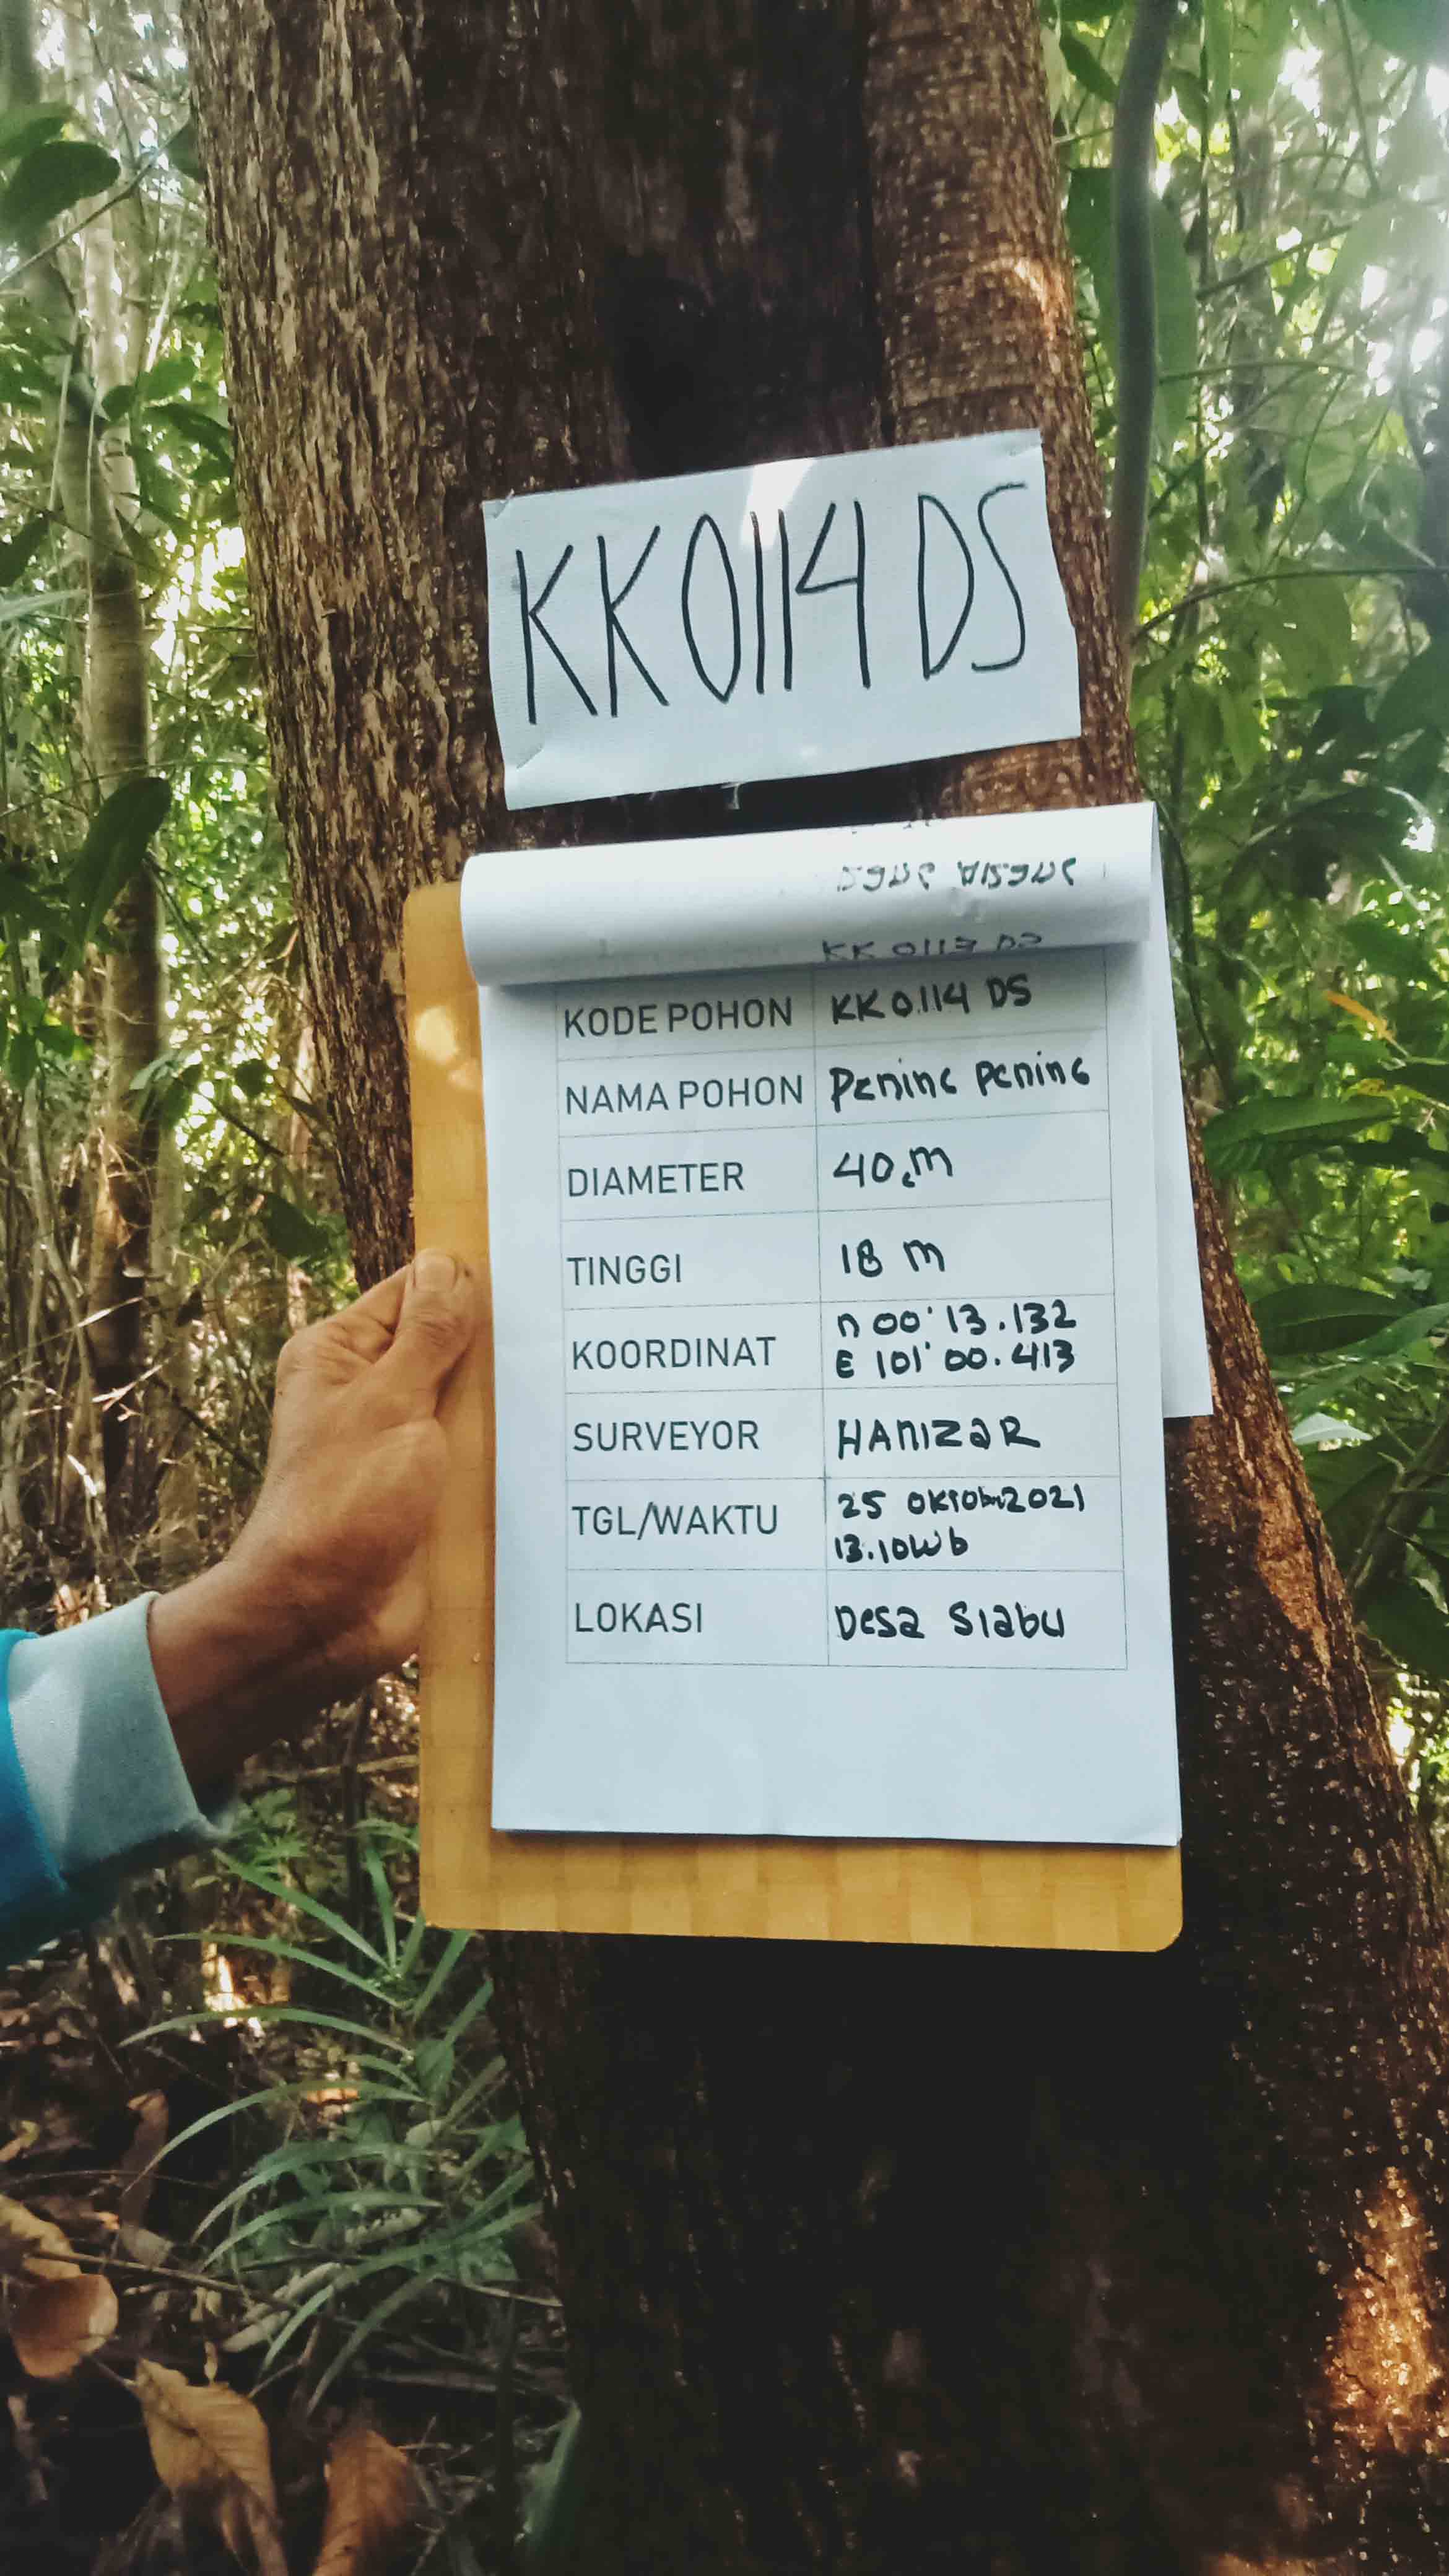 KK0114 DS
KK 0113 DS
KODE POHON KK0114 DS
NAMA POHON Pening pening
DIAMETER 40cm
TINGGI 18 m
KOORDINAT n 00' 13.132
E 101' 00.413
SURVEYOR HANIZAR
TGL/WAKTU 25 OKTOber2021
13.10Wb
LOKASI Desa Siabu